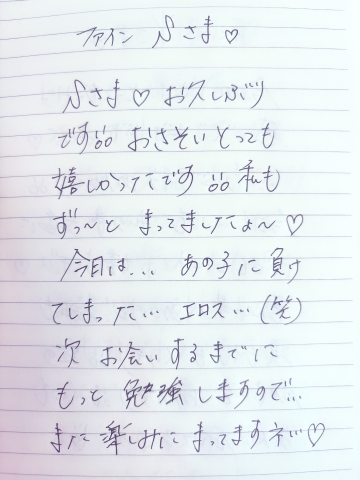 ファイン Sさま♡
Sさま♡ お久しぶり
です!!! おさそいとっても
嬉しかったです!!! 私も
ずっ〜と まってましたょ〜♡
今日は... あの子に負け
てしまった... エロス...(笑)
次 お会いするまでに
もっと 勉強しますので...
また楽しみにまってますネ!!♡